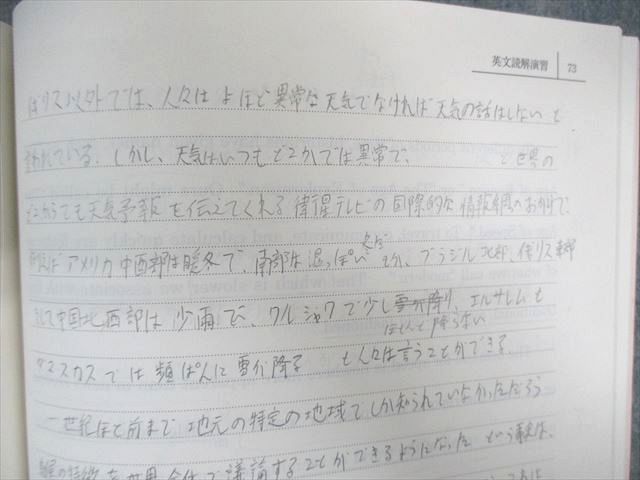 英文読解演習 73
ギリス以外では、人々は よほど異常な天気でなければ天気の話はしない と
言われている。しかし、天気はいつもどこかでは異常で、 と世界の
どこからでも天気予報 を伝えてくれる 衛星テレビの国際的な 情報網のおかげで、
アメリカ中西部は暖冬で、南部は湿っぽい 冬だ とか、ブラジル北部、イギリス東部
そして中国北西部は 少雨で、ワルシャワで少し雪が降り、エルサレムと
ほとんど降らない
ダマスカスでは頻ぱんに雪が降る と人々は言うことができる。
一世紀ほど前まで 地元の特定の地域でしか知られていなかっただろう
の特徴を世界全体で議論することができるようになった という事実は、